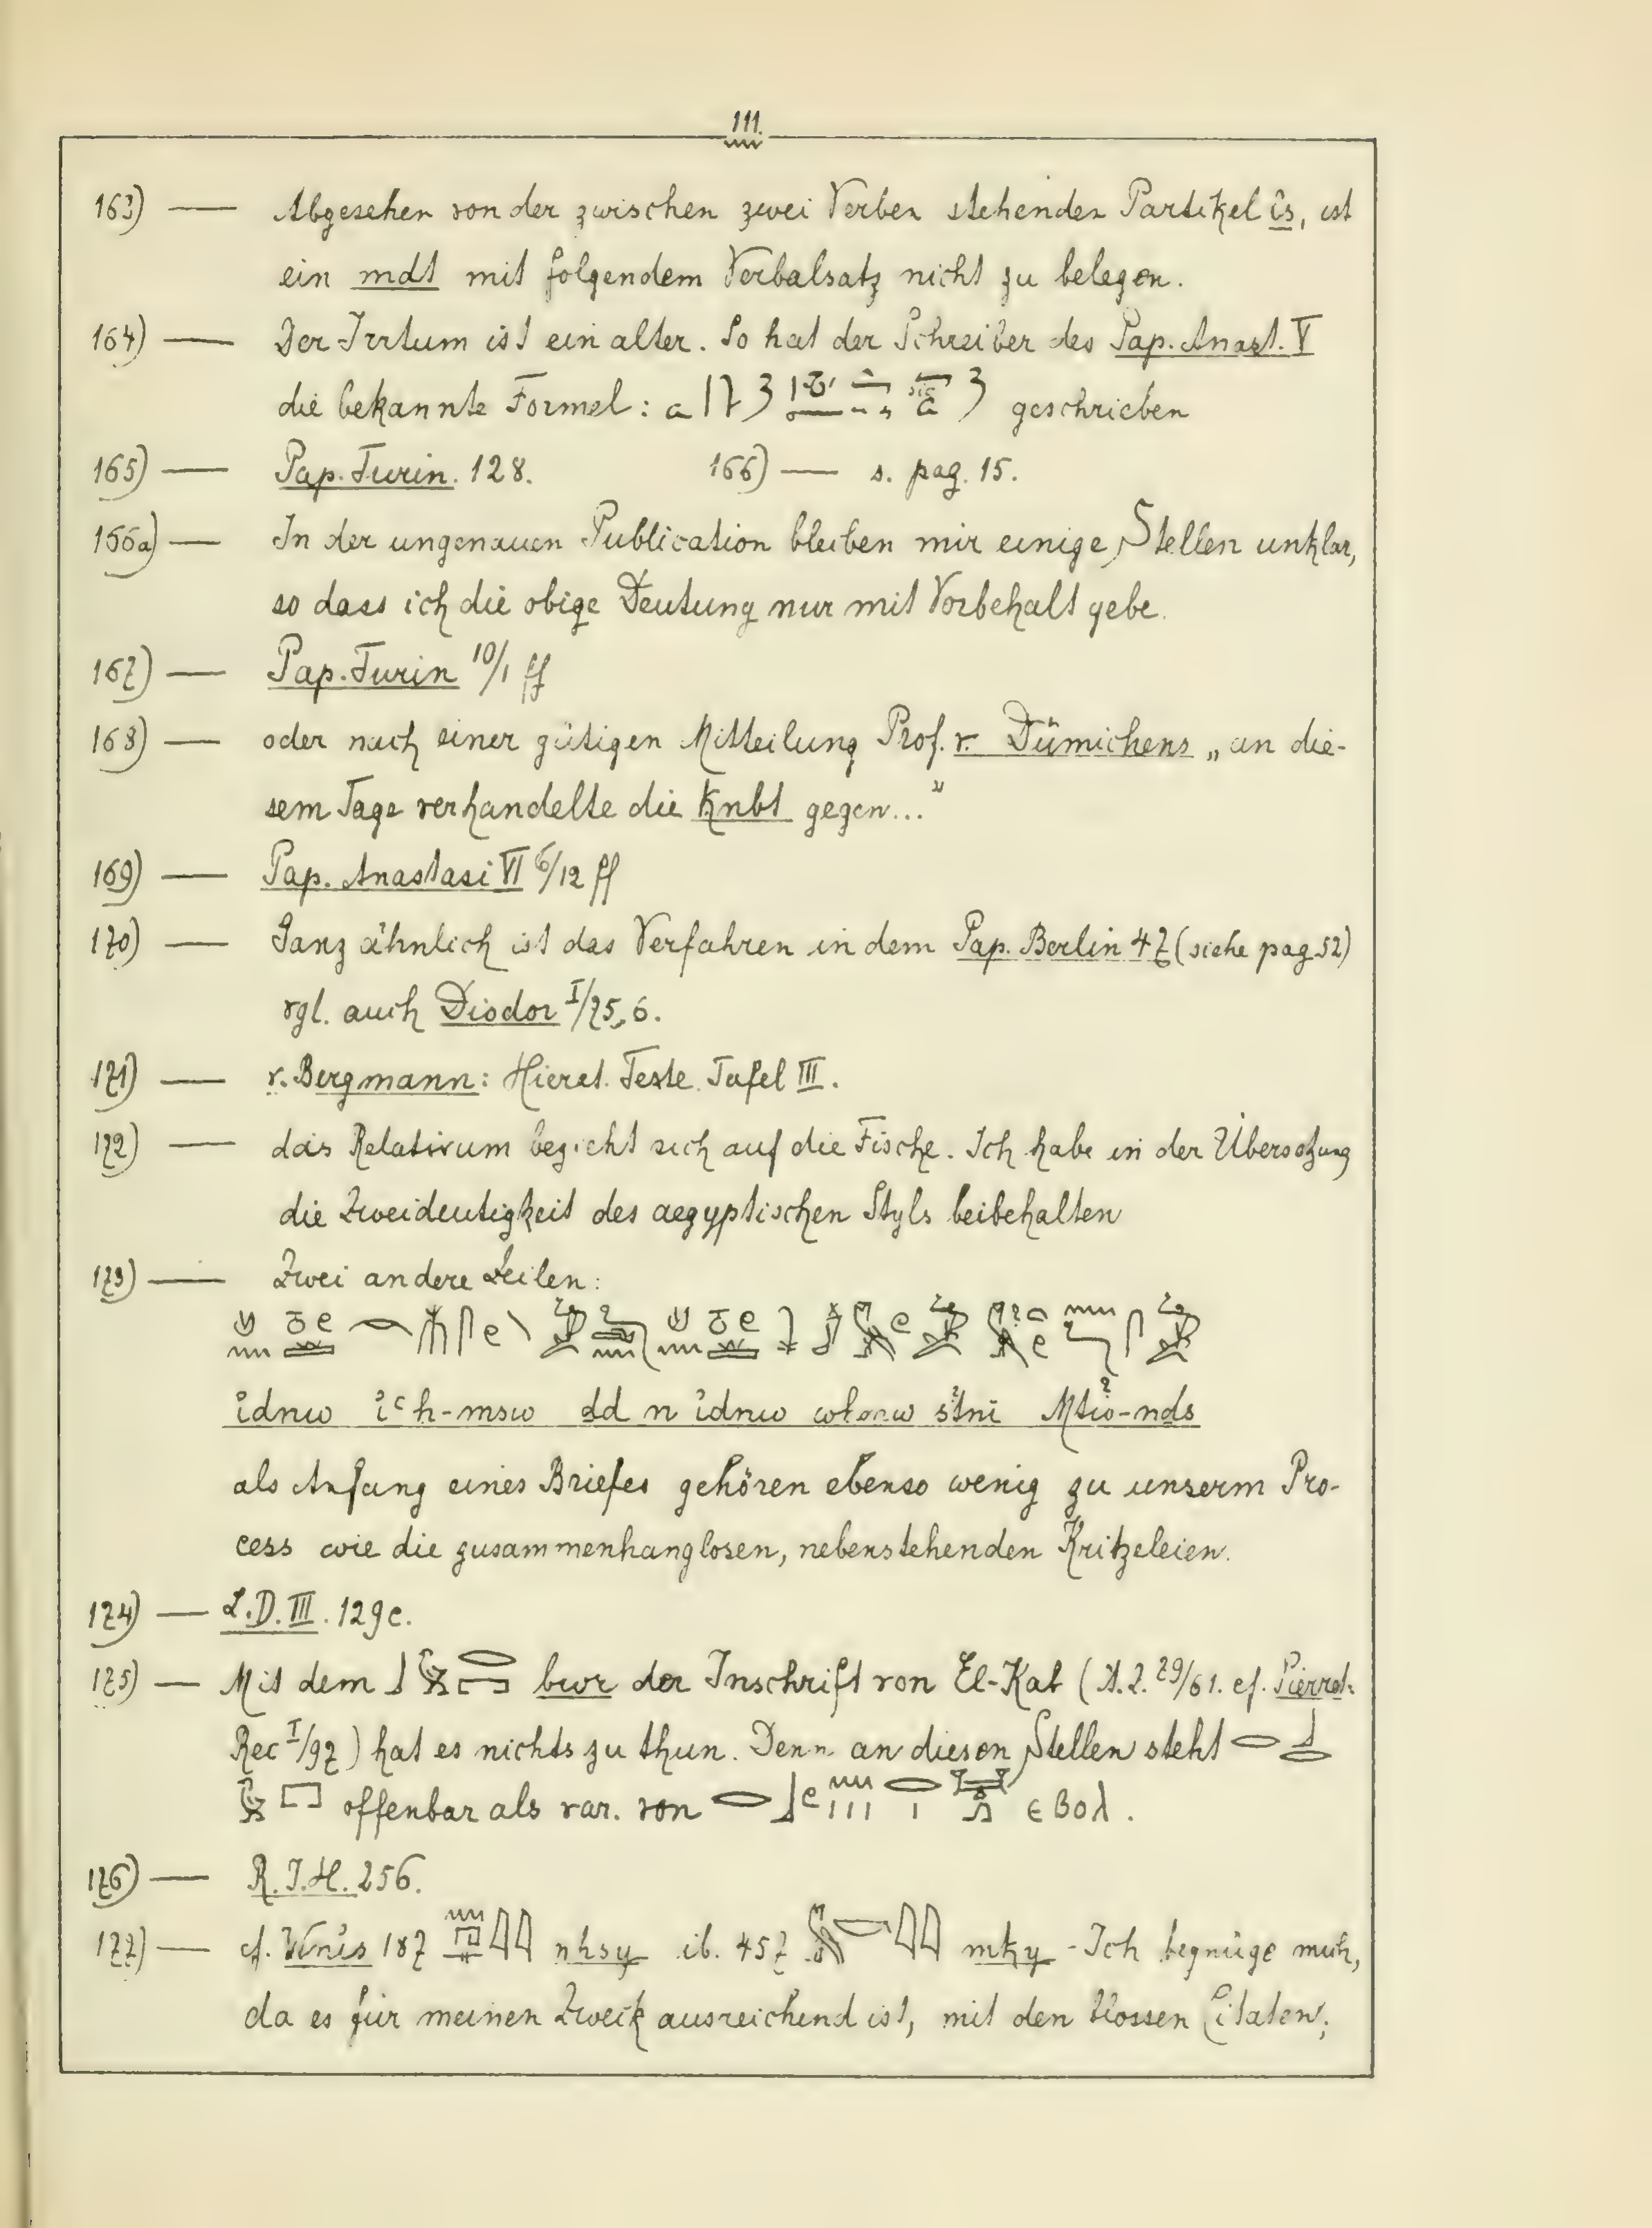 111.
163) — Abgesehen von der zwischen zwei Verben stehenden Partikel îs, ist
ein mdt mit folgendem Verbalsatz nicht zu belegen.
164) — Der Irrtum ist ein alter. So hat der Schreiber des Pap. Anast. V
die bekannte Formel: geschrieben
165) — Pap. Turin. 128. 166) — s. pag. 15.
166a) — In der ungenauen Publication bleiben mir einige Stellen unklar,
so dass ich die obige Deutung nur mit Vorbehalt gebe.
167) — Pap. Turin 10/1 ff
168) — oder nach einer gütigen Mitteilung Prof. v. Dümichens „an die-
sem Tage verhandelte die Knbt gegen..."
169) — Pap. Anastasi VI 6/12 ff
170) — Ganz ähnlich ist das Verfahren in dem Pap. Berlin 47 (siehe pag 52)
vgl. auch Diodor I/75,6.
171) — v. Bergmann: Hierat. Texte. Tafel III.
172) — das Relativum bezieht sich auf die Fische. Ich habe in der Übersetzung
die Zweideutigkeit des aegyptischen Styls beibehalten
173) — Zwei andere Zeilen:
idnw iʿh-msw dd n idnw štni Mtiw-nds
als Anfang eines Briefes gehören ebenso wenig zu unserm Pro-
cess wie die zusammenhanglosen, nebenstehenden Kritzeleien.
174) — L.D. III. 129c.
175) — Mit dem bwr der Inschrift von El-Kab (Ä.Z. 79/61. cf. Pierret.
Rec I/97) hat es nichts zu thun. Denn an diesen Stellen steht
offenbar als var. von ⲉⲃⲟⲗ.
176) — R.I.H. 256.
177) — cf. Wnis 187 nhsy ib. 457 mky - Ich begnüge mich,
da es für meinen Zweck ausreichend ist, mit den blossen Citaten;